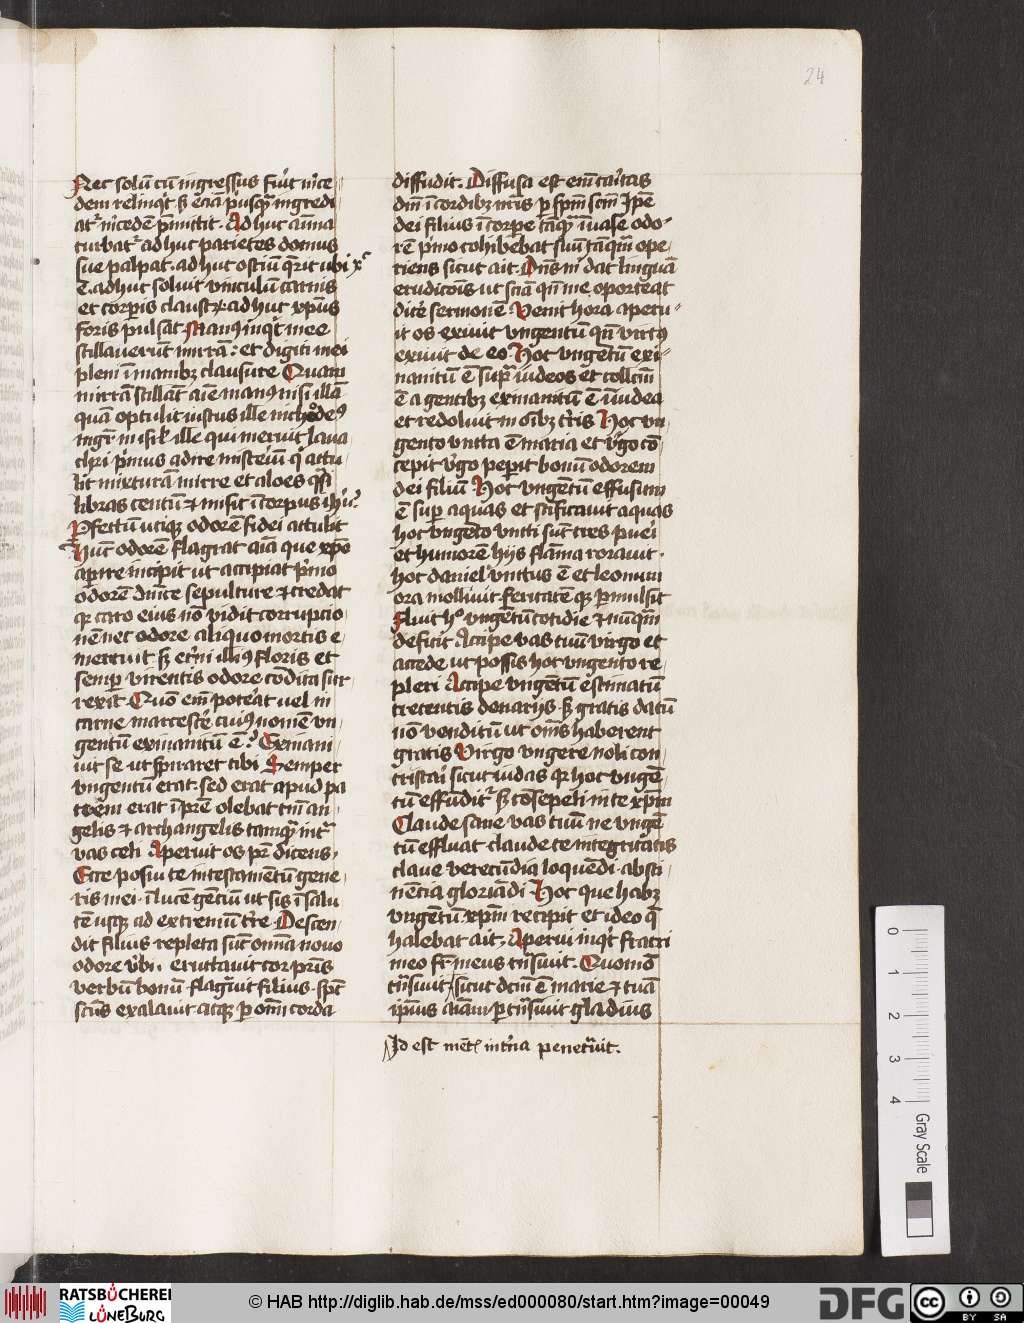 24
Nec solū cū ingressus fu'it m'ce
dem relinq't sȝ eciā p'usq̄ȝ ingredi
at' m'cedem p'mittit. Ad huc aīma
turbat' ad huc parietes domus
sue palpat. ad huc ostiū q'rit ubi xp̄c
ē. ad huc soluit vinculū carnis
et corpīs claustꝝ. ad huc xp̄us
foris pulsat Manꝰ inq't mee
stillauerūt mirrā: et digiti mei
pleni ī manibȝ clausure Quam
mirrā stillāt aīe manꝰ nisi illā
quā optulit iustus ille nichodeꝰ
mgr̄ in isrl̄ ille qui meruit laua
chri p'mus adire misteriū q' attu
lit mixturā mirre et aloes q̄si
libras centū ⁊ misit ī corpus ihū
Pfectū utiqȝ odorē fidei attulit
Hūc odorē flagrat aīa que xpō
apīre incipit ut accipiat p'mo
odorē dn̄ice sepulture ⁊ credat
qꝛ caro eius nō vidit corrupcio
nē nec odore aliquo mortis e
mercuit sȝ et'ni illiꝰ floris et
semp virentis odore cōdita sur
rexit Quō em̄ poterat uel in
carne marcescē cuiꝰ nomē vn
gentū exinanitū ē. Exinani
uit se ut spiraret tibi Semper
vngentū erat. sed erat apud pa
trem erat ī pr̄e olebat tm̄ an
gelis ⁊ archangelis tamq̄ȝ int'
vas celi Aperuit os pr̄ dicens
Ecce posui te in testamentū gene
ris mei. ī lucē gētiū ut sis ī salu
tē usqȝ ad extremū t're Descen
dit filius repleta sūt omīa nouo
odore v'bi. eructauit cor pr̄is
verbū bonū flagr̄uit filius. spūs
scūs exalauit atqȝ p om̄i corda
diffudit. Diffusa est em̄ ca'itas
dm̄ ī cordibȝ nr̄is p spm̄ scm̄ Ipē
dei filius ī corpe tāqȝ ī uase odo
rē p'mo cohibebat suū tāq̄ȝ ope
riens sicut ait. Dn̄s m' dat linguā
erudicōis ut sciā qn̄ me oporteat
dicē sermonē Venit hora aperu
it os exiuit vngentū qn̄ virtꝰ
exiuit de eo Hoc vngētū exi
nanitū ē sup' iudeos et collcm̄
ē a gentibȝ exinanitū ē ī iudea
et redoluit in oībȝ t'ris Hoc vn
gento vncta ē maria et v'go cō
cepit v'go pep'it bonū odorem
dei filiū Hoc vngentū effusum
ē sup aquas et scificauit aquas
hoc vngēto vncti sūt tres pue'i
et humorē hijs flāma rorauit.
hoc daniel vnctus ē et leonum
ora molliuit feritatē qȝ p̄mulsit
Fluit h' vngentū cotidie ⁊ nūq̄ȝ
deficit Accipe vas tuū virgo et
accede ut possis hoc vngento re
pleri Accipe vngentū estimatū
trecentis denarijs sȝ gratis datū
nō venditū ut om̄s haberent
gratis Virgo vngere noli con
trista'i sicut iudas qꝛ hoc vngē
tū effudit' sȝ cōsepeli in te xpm̄
Claude sane vas tuū ne vngē
tū effluat claude te integritatis
claue verecūdia loquēdi absti
nēcia gloriādi Hoc que habȝ
vngētū xpm̄ recipit et ideo q̄
halebat ait. Aperui inq't fratri
meo fr̄ meus t'nsiuit. Quomō
t'nsiuit sicut dcm̄ ē marie ⁊ tuā
ip̄ius aīam p t'nsiuit gladius
Id est ment' int'ria penet'uit.
0
1
2
3
4
Gray Scale
RATSBÜCHEREI
LÜNEBURG
© HAB http://diglib.hab.de/mss/ed000080/start.htm?image=00049
DFG
cc
BY SA